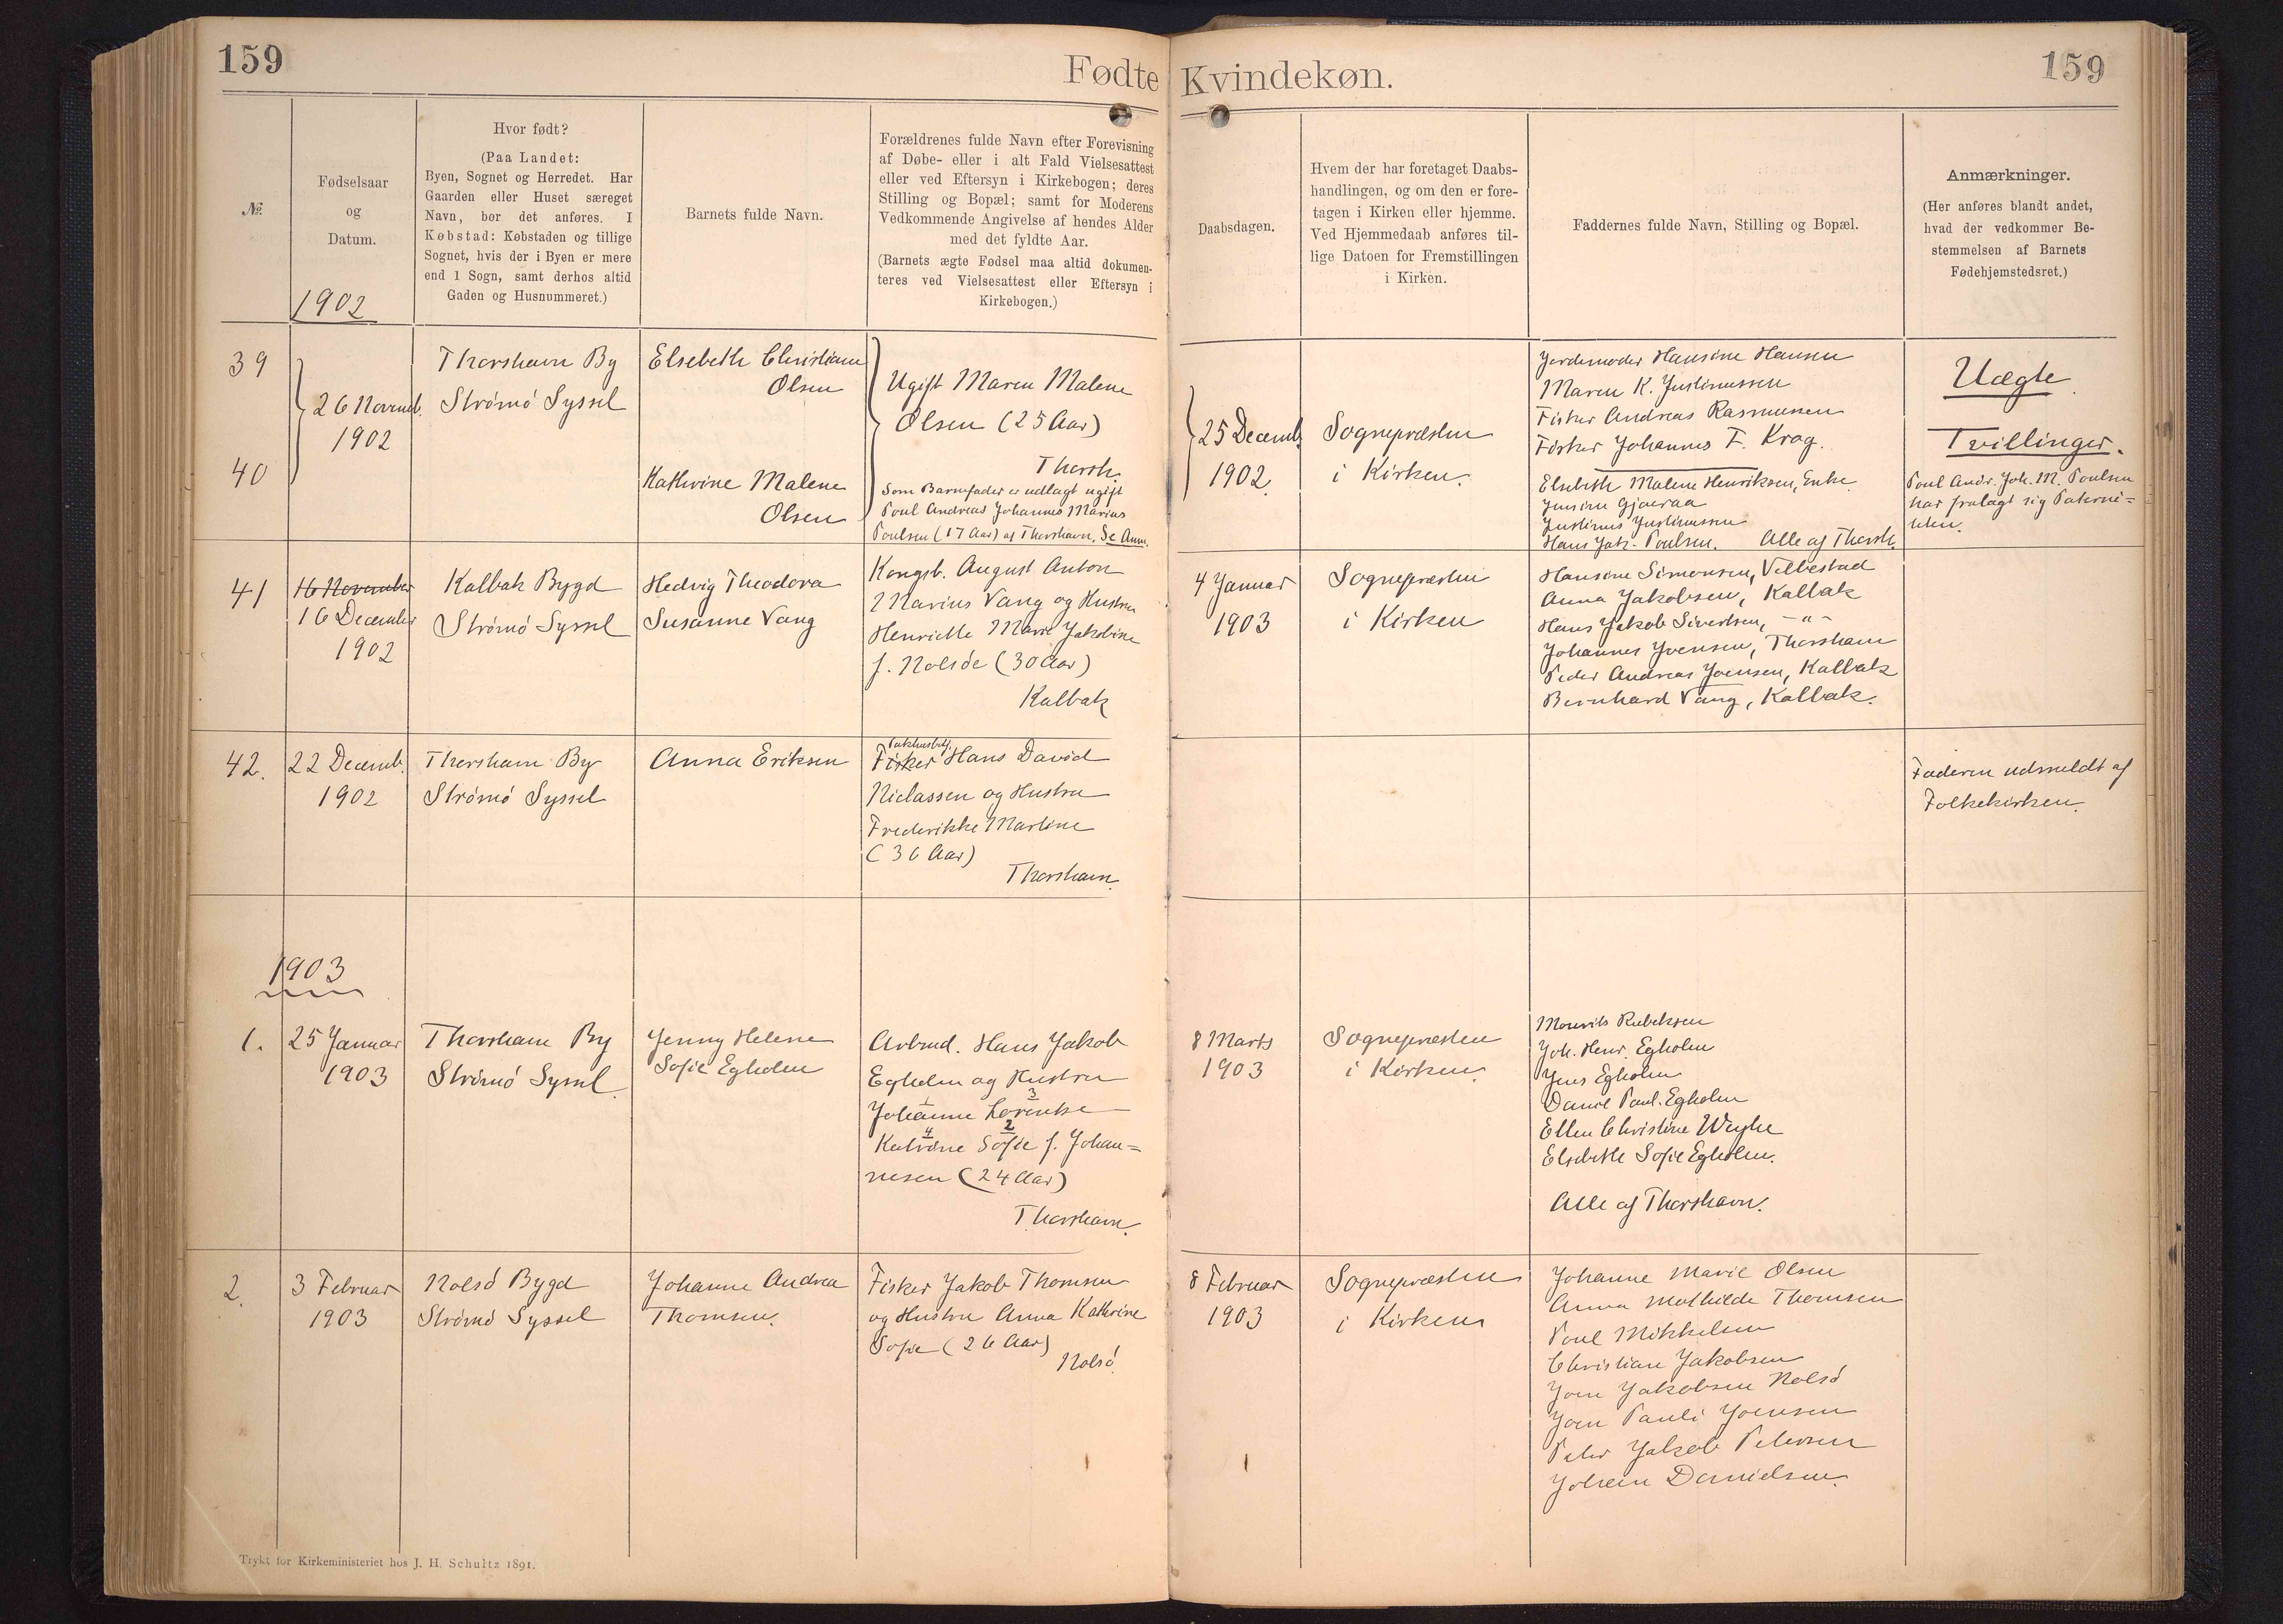 159
Fødte
Kvindekøn.
159
№
Fødselsaar
og
Datum.
1902
Hvor født?
(Paa Landet:
Byen, Sognet og Herredet. Har
Gaarden eller Huset særeget
Navn, bør det anføres. I
Købstad: Købstaden og tillige
Sognet, hvis der i Byen er mere
end 1 Sogn, samt derhos altid
Gaden og Husnummeret.)
Barnets fulde Navn.
Forældrenes fulde Navn efter Forevisning
af Døbe- eller i alt Fald Vielsesattest
eller ved Eftersyn i Kirkebogen; deres
Stilling og Bopæl; samt for Moderens
Vedkommende Angivelse af hendes Alder
med det fyldte Aar.
(Barnets ægte Fødsel maa altid dokumen-
teres ved Vielsesattest eller Eftersyn i
Kirkebogen.)
Daabsdagen.
Hvem der har foretaget Daabs-
handlingen, og om den er fore-
tagen i Kirken eller hjemme.
Ved Hjemmedaab anføres til-
lige Datoen for Fremstillingen
i Kirken.
Faddernes fulde Navn, Stilling og Bopæl.
Anmærkninger.
(Her anføres blandt andet,
hvad der vedkommer Be-
stemmelsen af Barnets
Fødehjemstedsret.)
39
40
26 Novemb.
1902
Thorshavn By
Strömö Syssel
Elsebeth Christiane
Olsen
Kathrine Malene
Olsen
Ugift Maren Malene
Olsen (25 Aar)
Thorsh.
Som Barnefader er udlagt ugift
Poul Andreas Johannes Marius
Poulsen (17 Aar) af Thorshavn. Se Anm.
25 Decemb.
1902.
Sognepræsten
i Kirken.
Jordemoder Hansine Hansen
Maren K. Justinussen
Fisker Andreas Rasmussen
Fisker Johannes F. Krog.
Elsebeth Malene Henriksen, Enke
Jensine Gjøveraa
Justinus Justinussen
Hans Jak. Poulsen. Alle af Thorsh.
Uægte
Tvillinger.
Poul Andr. Joh. M. Poulsen
har fralagt sig Paterni-
teten.
41
16 November
16 December
1902
Kalbak Bygd
Strömö Syssel
Hedvig Theodora
Susanne Vang
Kongsb. August Anton
Marius Vang og Hustru
Henriette Marie Jakobine
f. Nolsöe (30 Aar)
Kalbak
4 Januar
1903
Sognepræsten
i Kirken
Hansine Simonsen, Velbestad
Anna Jakobsen, Kalbak
Hans Jakob Sivertsen, -"-
Johannes Joensen, Thorshavn
Peder Andreas Joensen, Kalbak
Bernhard Vang, Kalbak.
42.
22 Decemb.
1902
Thorshavn By
Strömö Syssel
Anna Eriksen
Pakhusbetj.
Fisker Hans David
Niclassen og Hustru
Frederikke Martine
(36 Aar)
Thorshavn.
Faderen udmeldt af
Folkekirken.
1903
1.
25 Januar
1903
Thorshavn By
Strömö Syssel.
Jenny Helene
Sofie Egholm
Arbmd. Hans Jakob
Egholm og Hustru
1 3
Johanne Lorentse
4 2
Katrine Sofie f. Johan-
nesen (24 Aar)
Thorshavn.
8 Marts
1903
Sognepræsten
i Kirken.
Mourits Rubeksen
Joh. Henr. Egholm
Jens Egholm
Daniel Paul. Egholm
Ellen Christine Weyhe
Elsebeth Sofie Egholm.
Alle af Thorshavn.
2.
3 Februar
1903
Nolsö Bygd
Strömö Syssel
Johanne Andrea
Thomsen.
Fisker Jakob Thomsen
og Hustru Anna Kathrine
Sofie (26 Aar)
Nolsö.
8 Februar
1903
Sognepræsten
i Kirken
Johanne Marie Olsen
Anna Mathilde Thomsen
Poul Mikkelsen
Christian Jakobsen
Joen Jakobsen Nolsö
Joen Pauli Joensen
Peter Jakob Petersen
Johan Danielsen.
Trykt for Kirkeministeriet hos J. H. Schultz 1891.